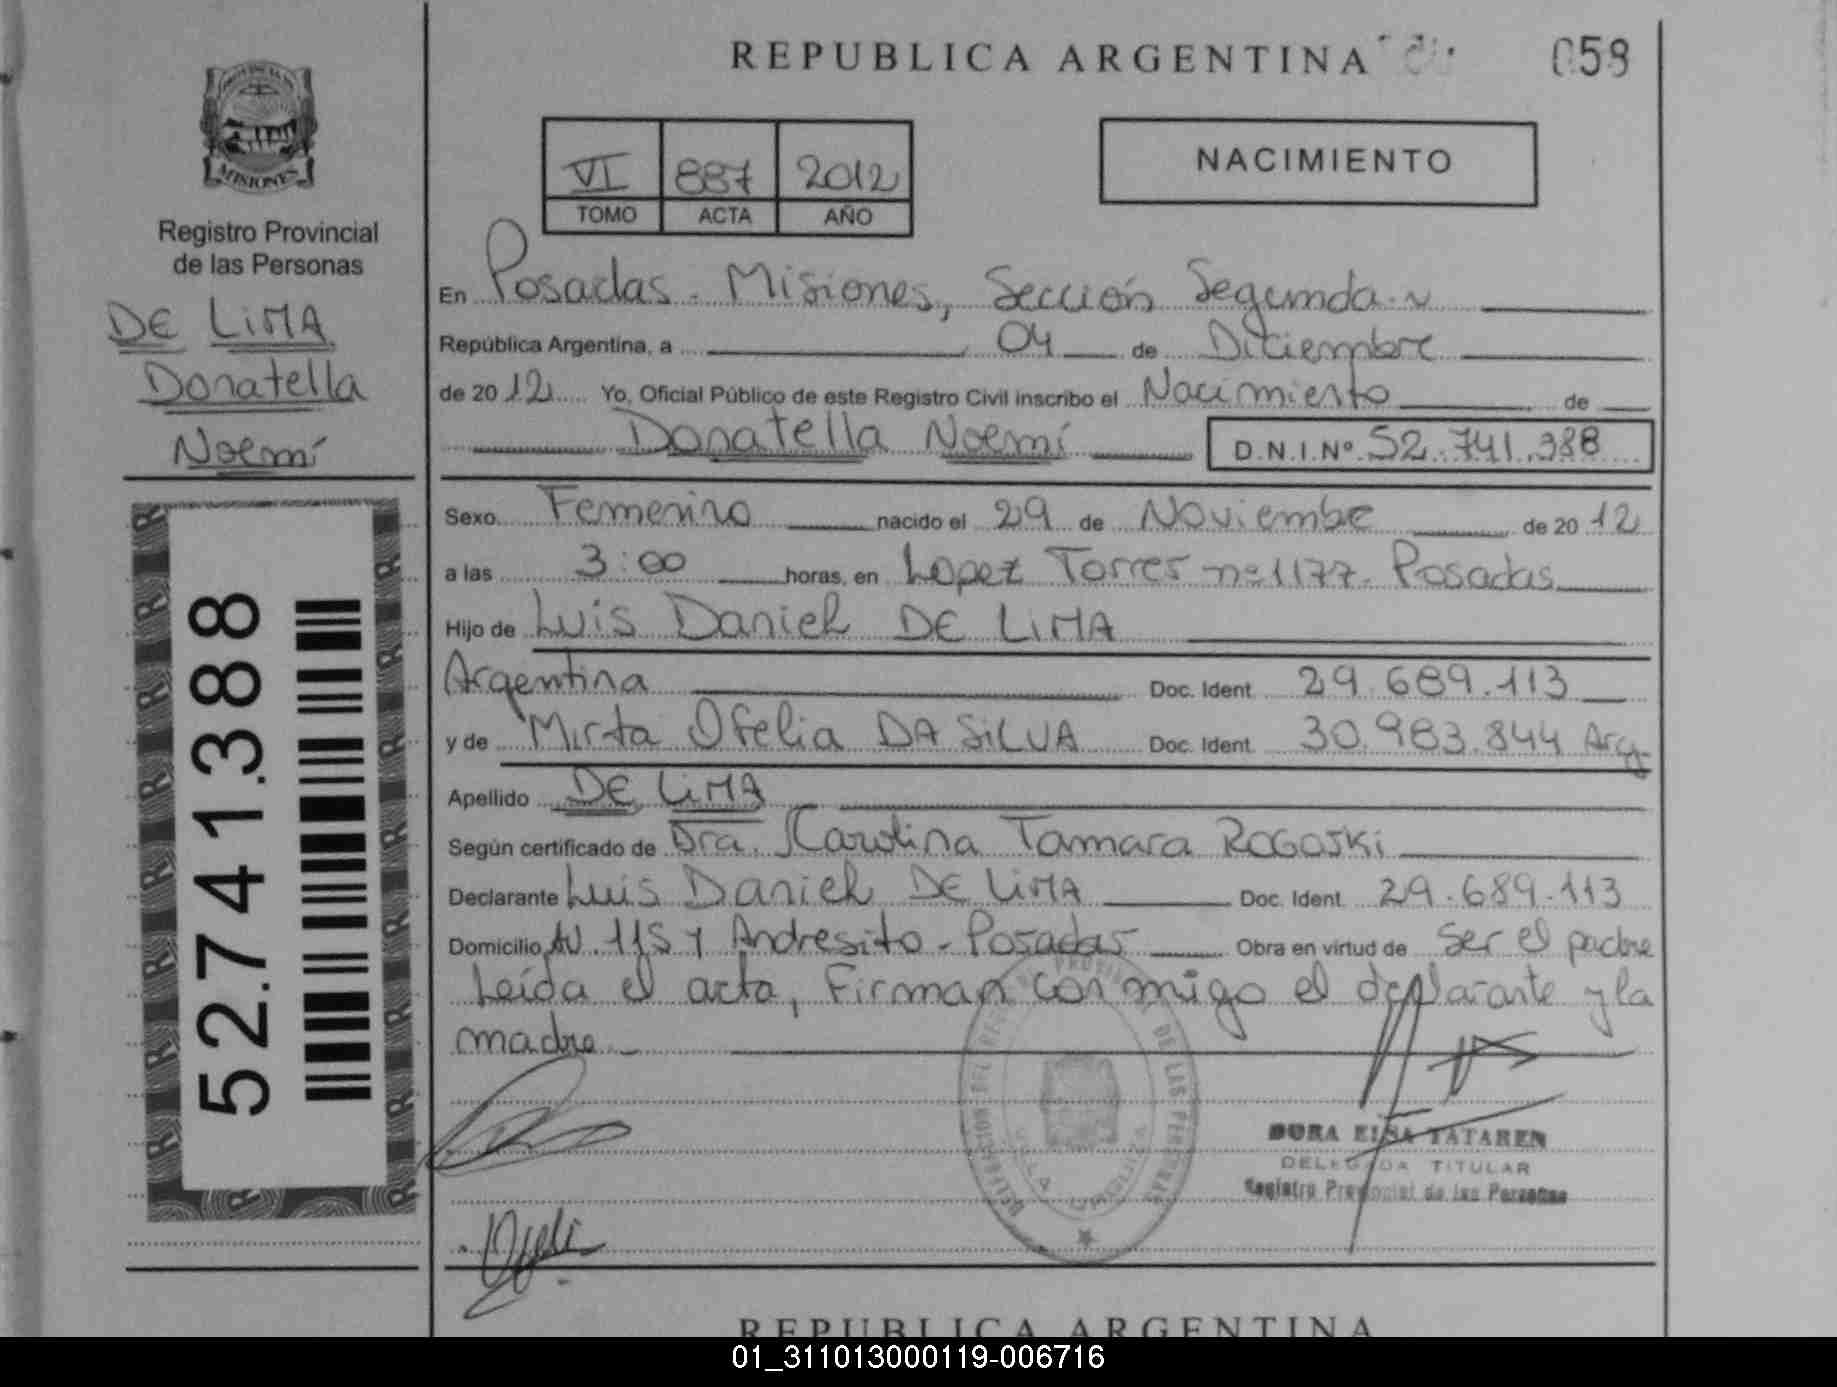 REPUBLICA ARGENTINA
058
PROVINCIA DE
MISIONES
Registro Provincial
de las Personas
DE LIMA
Donatella
Noemí
52.741.388
VI 887 2012
TOMO ACTA AÑO
NACIMIENTO
En Posadas. Misiones, Sección Segunda.
República Argentina, a 04 de Diciembre
de 2012 Yo, Oficial Público de este Registro Civil inscribo el Nacimiento de
Donatella Noemí D.N.I.Nº 52.741.388
Sexo Femenino nacido el 29 de Noviembe de 2012
a las 3:00 horas, en Lopez Torres nº 1177. Posadas
Hijo de Luis Daniel DE LIMA
Argentina Doc. Ident 29.689.113
y de Mirta Ofelia DA SILVA Doc. Ident 30.983.844 Arg.
Apellido DE LIMA
Según certificado de Dra. Carolina Tamara ROGOSKI
Declarante Luis Daniel DE LIMA Doc. Ident. 29.689.113
Domicilio AV. 115 y Andresito - Posadas Obra en virtud de ser el padre
Leída el acta, Firman conmigo el declarante y la
madre
DORA ELSA TATAREN
DELEGADA TITULAR
Registro Provincial de las Personas
REPUBLICA ARGENTINA
01_311013000119-006716